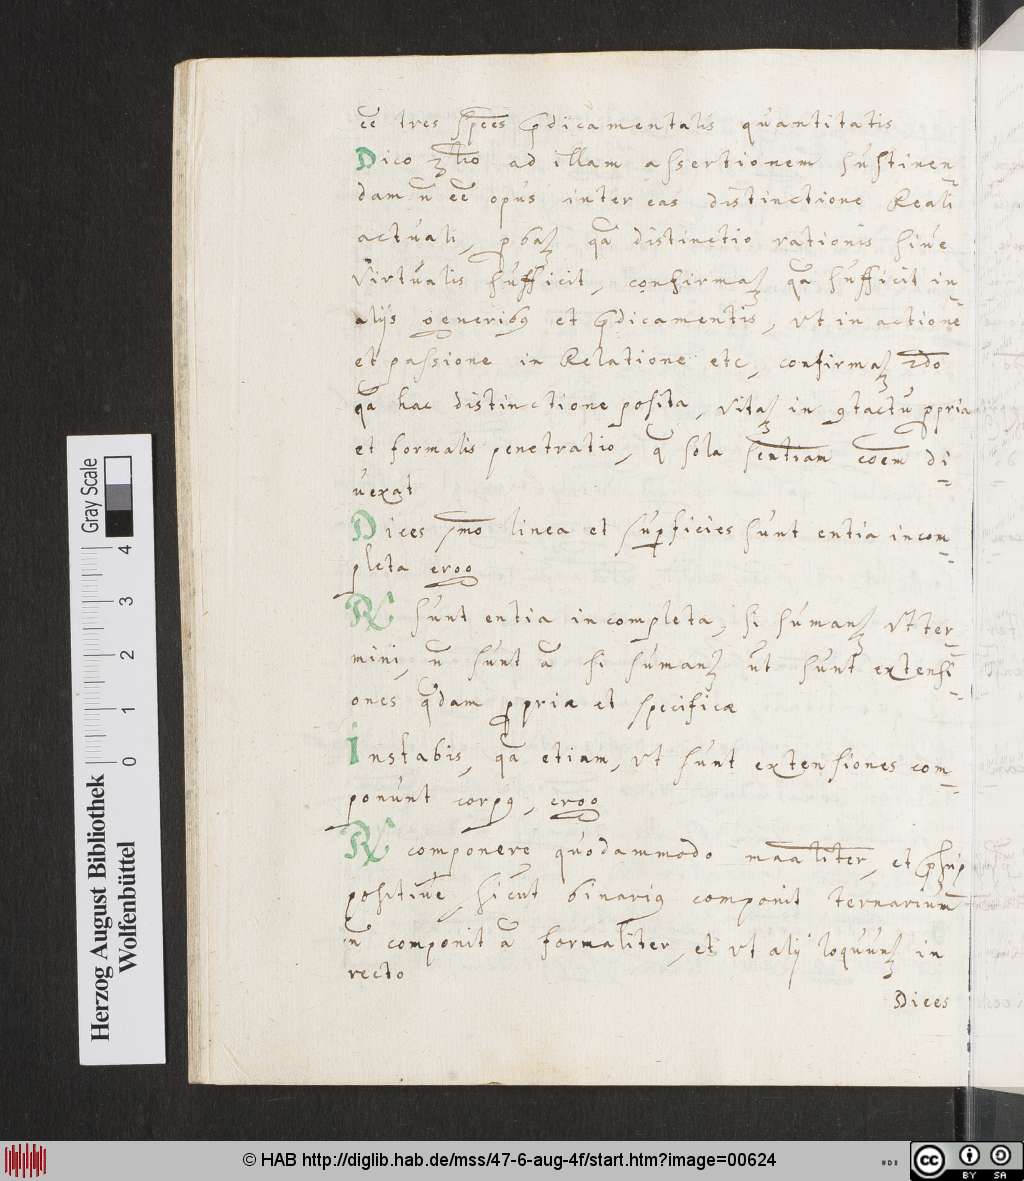 eē tres spēes p̄dicamentalis quantitatis
Dico 3tio ad illam assertionem sustinen-
dam n̄ eē opus inter eas distinctione Reali
actuali, probaꝫ qā distinctio rationis siue
virtualis sufficit, confirmaꝫ qā sufficit in
alijs generibꝰ et p̄dicamentis, vt in actione
et passione in Relatione etc, confirmaꝫ 2do
qā hac distinctione posita, vitaꝫ in ꝯtactu ꝓpria
et formalis penetratio, q̄ sola sentiam̄ coem̄ di-
uexat
Dices 1mo linea et suꝑficies sunt entia incom-
pleta ergo
℟ sunt entia incompleta, si sumanꝫ vt ter-
mini, n̄ sunt ā si sumanꝫ ut sunt extensi-
ones q̄dam ꝓpriæ et specificæ
Instabis, qā etiam, vt sunt extensiones com-
ponunt corpꝰ, ergo
℟ componere quodammodo maāliter, et p̄sup
positiuē, sicut binariꝰ componit ternarium
n̄ componit ā formaliter, et vt alij loquunꝫ in
recto
Dices
Herzog August Bibliothek
Wolfenbüttel
0 1 2 3 4
Gray Scale
© HAB http://diglib.hab.de/mss/47-6-aug-4f/start.htm?image=00624
cc BY SA